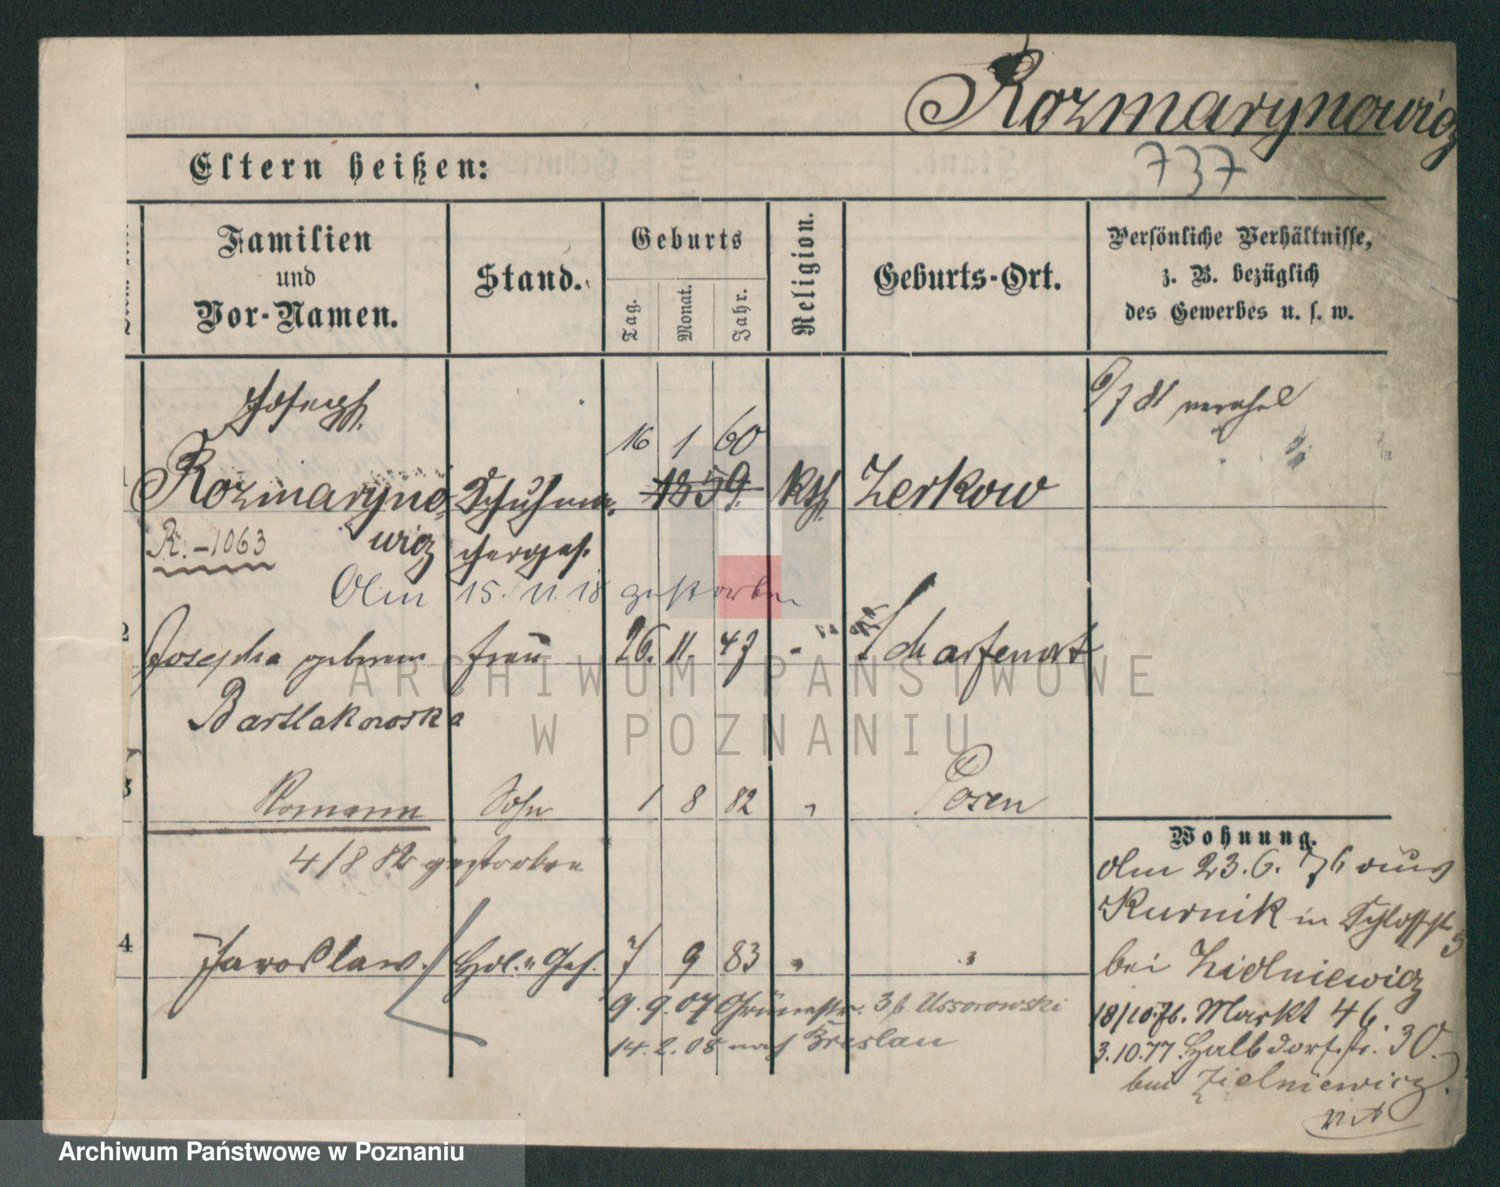 Rozmarynowicz
737
Eltern heißen:
Familien
und
Vor-Namen.
Stand.
Geburts
Tag.
Monat.
Jahr.
Religion.
Geburts-Ort.
Persönliche Verhältnisse,
z. B. bezüglich
des Gewerbes u. s. w.
Joseph
16 1 60
Rozmaryno- Schuhma- 1859. kth. Zerkow
wicz chergес.
R. -1063
Olm 15. 11. 18 gestorben
2 Josepha geborene Frau 26. 11. 47 " Scharfenort
Bartlakowska
3 Romann Sohn 1 8 82 " Posen
4/8 82 gestorben
4 Jaroslaw. Hdl. Geh. 7 9 83 " "
9. 9. 07 Grünestr. 3 b. Ussorowski
14. 2. 08 nach Breslau
6/7 81
Wohnung.
Olm 23. 6. 76 aus
Kurnik in Schloßstr. 3
bei Zidniewicz
18/10.76. Markt 46.
3.10.77. Halbdorfstr. 30.
bei Zielniewicz.
ARCHIWUM PAŃSTWOWE
W POZNANIU
Archiwum Państwowe w Poznaniu